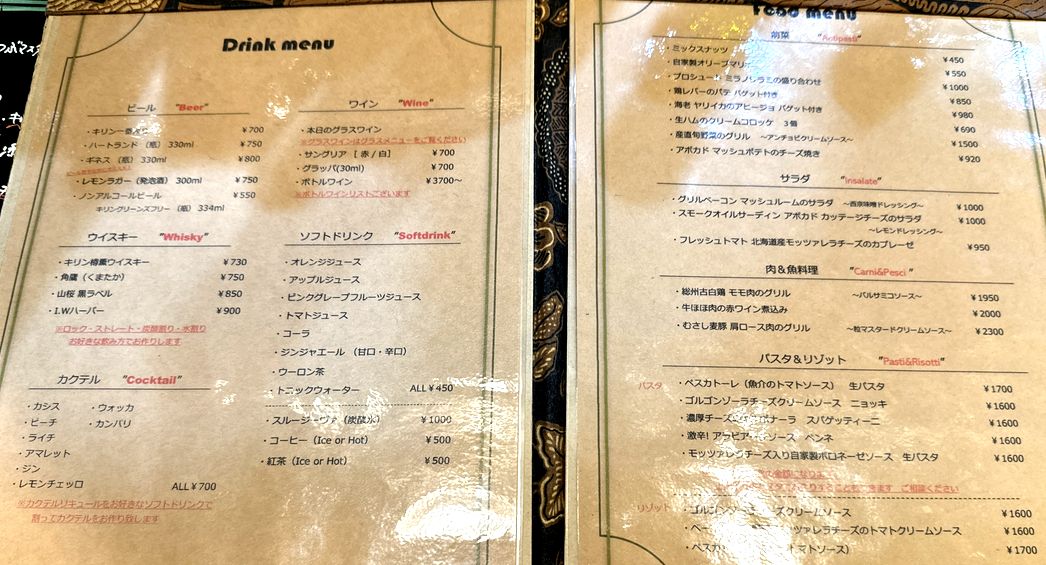 Drink menu
ビール "Beer"
・キリン一番搾り ¥700
・ハートランド (瓶) 330ml ¥750
・ギネス (瓶) 330ml ¥800
・レモンラガー (発泡酒) 300ml ¥750
・ノンアルコールビール ¥550
キリングリーンズフリー (瓶) 334ml
ウイスキー "Whisky"
・キリン樽薫ウイスキー ¥730
・角鷹 (くまたか) ¥750
・山桜 黒ラベル ¥850
・I.Wハーパー ¥900
※ロック・ストレート・炭酸割り・水割り
お好きな飲み方でお作りします
カクテル "Cocktail"
・カシス ・ウォッカ
・ピーチ ・カンパリ
・ライチ
・アマレット
・ジン
・レモンチェッロ ALL¥700
※カクテルリキュールをお好きなソフトドリンクで
割ってカクテルをお作り致します
ワイン "Wine"
・本日のグラスワイン
※グラスワインはグラスメニューをご覧ください
・サングリア [ 赤 / 白 ] ¥700
・グラッパ(30ml) ¥700
・ボトルワイン ¥3700～
※ボトルワインリストございます
ソフトドリンク "Softdrink"
・オレンジジュース
・アップルジュース
・ピンクグレープフルーツジュース
・トマトジュース
・コーラ
・ジンジャエール (甘口・辛口)
・ウーロン茶
・トニックウォーター ALL¥450
・スルージーヴァ (炭酸水) ¥1000
・コーヒー (Ice or Hot) ¥500
・紅茶 (Ice or Hot) ¥500
Food menu
前菜 "Antipasti"
・ミックスナッツ ¥450
・自家製オリーブマリネ ¥550
・プロシュート ミラノサラミの盛り合わせ ¥1000
・鶏レバーのパテ バゲット付き ¥850
・海老 ヤリイカのアヒージョ バゲット付き ¥980
・生ハムのクリームコロッケ 3個 ¥690
・産直旬野菜のグリル ～アンチョビクリームソース～ ¥1500
・アボカド マッシュポテトのチーズ焼き ¥920
サラダ "insalate"
・グリルベーコン マッシュルームのサラダ ～西京味噌ドレッシング～ ¥1000
・スモークオイルサーディン アボカド カッテージチーズのサラダ ¥1000
～レモンドレッシング～
・フレッシュトマト 北海道産モッツァレラチーズのカプレーゼ ¥950
肉＆魚料理 "Carni&Pesci"
・総州古白鶏 モモ肉のグリル ～バルサミコソース～ ¥1950
・牛ほほ肉の赤ワイン煮込み ¥2000
・むさし麦豚 肩ロース肉のグリル ～粒マスタードクリームソース～ ¥2300
パスタ＆リゾット "Pasti&Risotti"
パスタ ・ペスカトーレ (魚介のトマトソース) 生パスタ ¥1700
・ゴルゴンゾーラチーズクリームソース ニョッキ ¥1600
・濃厚チーズ ボナーラ スパゲッティーニ ¥1600
・激辛! アラビアータソース ペンネ ¥1600
・モッツァレラチーズ入り自家製ボロネーゼソース 生パスタ ¥1600
ご相談ください
リゾット ・ゴルゴンゾーラチーズクリームソース ¥1600
モッツァレラチーズのトマトクリームソース ¥1600
・ペスカ トマトソース) ¥1700